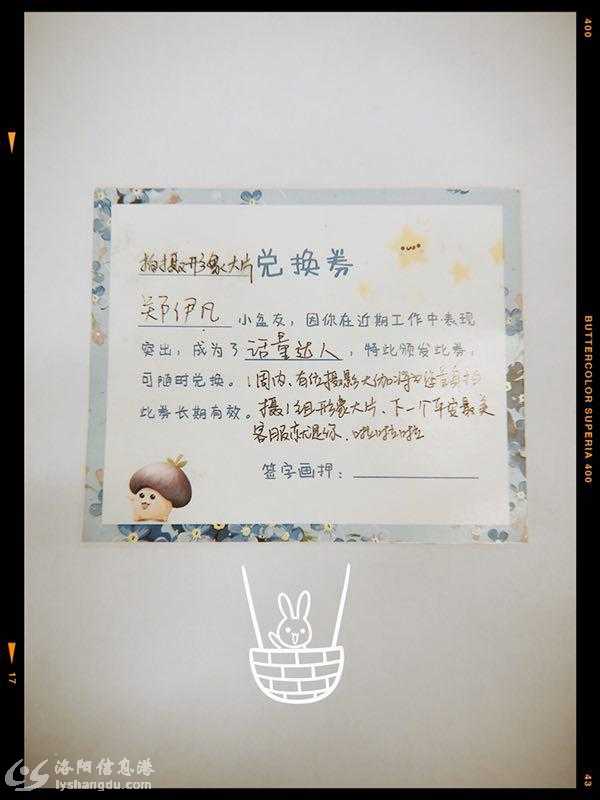 400
拍摄形象大片兑换券
郑伊凡小盆友，因你在近期工作中表现
突出，成为了话量达人，特此颁发此券，
可随时兑换。1周内，有位摄影大咖将为你亲自拍
此券长期有效。摄1组形象大片，下一个年度最美
客服就是你，啦啦啦
签字画押：
BUTTERCOLOR SUPERIA 400
17
43
洛阳信息港
lyshangdu.com